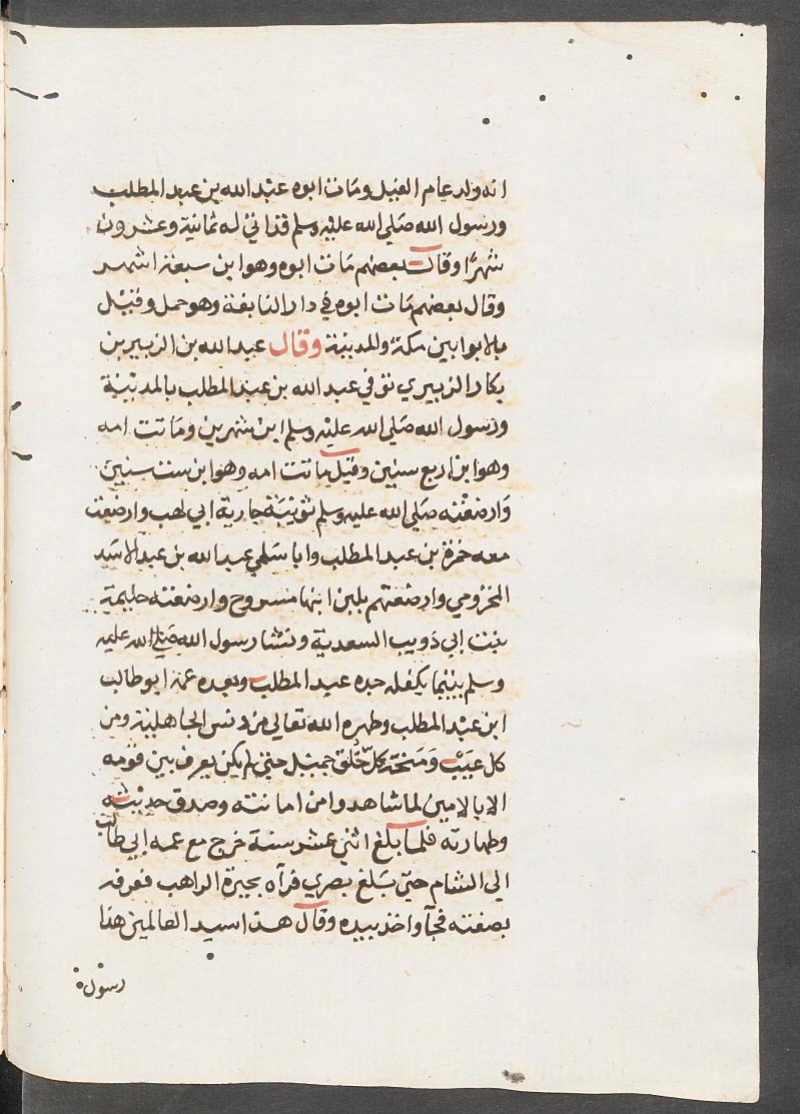 انه ولد عام الفيل ومات ابوه عبد الله بن عبد المطلب
ورسول الله صلي الله عليه وسلم قد اتي له ثمانية وعشرون
شهرًا وقال بعضهم مات ابوه وهو ابن سبعة اشهر
وقال بعضهم مات ابوه في دار النابغة وهو حمل وقيل
بالابوا بين مكة والمدينة وقال عبد الله بن الزبير بن
بكار الزبيري توفي عبد الله بن عبد المطلب بالمدينة
ورسول الله صلي الله عليه وسلم ابن شهرين وماتت امه
وهو ابن اربع سنين وقيل ماتت امه وهو ابن ست سنين
وارضعته صلي الله عليه وسلم ثويبة جارية ابي لهب وارضعت
معه حمزة بن عبد المطلب وابا سلمي عبد الله بن عبد الاسد
المخزومي وارضعتهم بلبن ابنها مسروح وارضعته حليمة
بنت ابي ذويب السعدية ونشا رسول الله صلي الله عليه
وسلم يتيما يكفله جده عبد المطلب وبعده عمه ابو طالب
ابن عبد المطلب وطهره الله تعالي من دنس الجاهلية ومن
كل عيب ومنحه كل خلق جميل حتي لم يكن يعرف بين قومه
الا بالامين لما شاهدوا من امانته وصدق حديثه
وطهارته فلما بلغ اثني عشر سنة خرج مع عمه ابي طالب
الي الشام حتي بلغ بصري فرآه بحيرة الراهب فعرفه
بصفته فجآ واخذ بيده وقال هذا سيد العالمين هذا
رسول